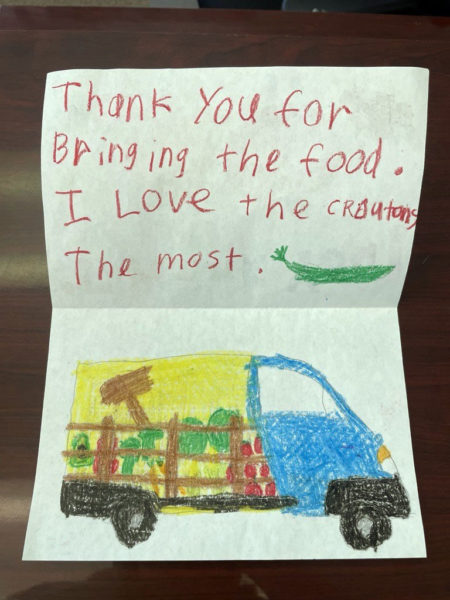 Thank You for
Bringing the food.
I Love the CREutons
The most.